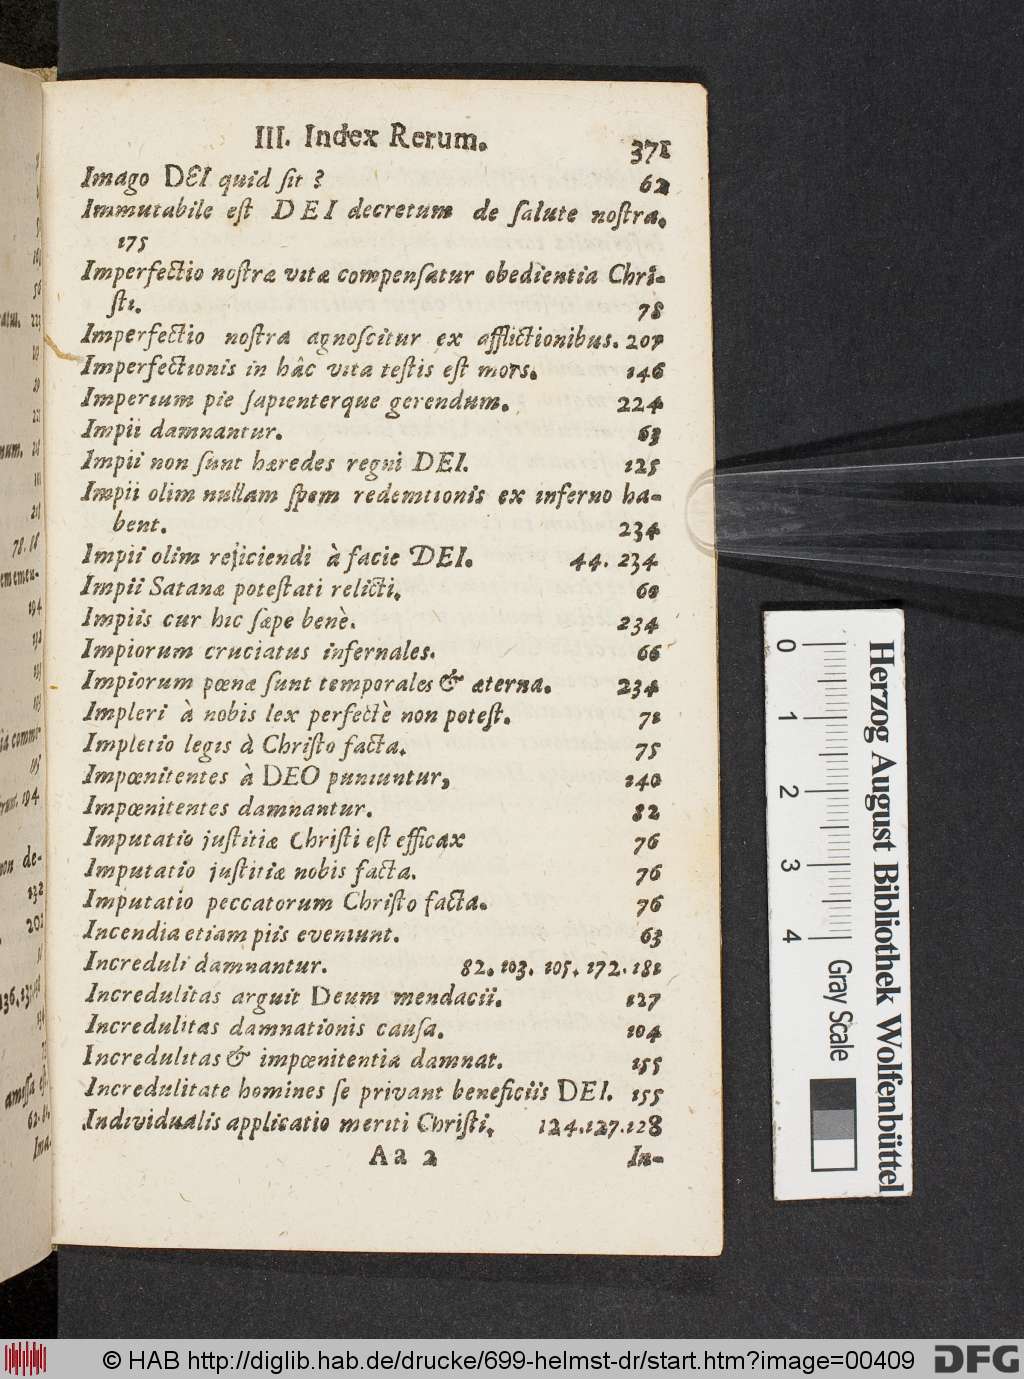 III. Index Rerum.
371
Imago DEI quid ſit ? 62
Immutabile eſt DEI decretum de ſalute noſtra.
175
Imperfectio noſtræ vitæ compenſatur obedientia Chri-
ſti. 78
Imperfectio noſtra agnoſcitur ex afflictionibus. 207
Imperfectionis in hâc vita teſtis eſt mors. 146
Imperium pie ſapienterque gerendum. 224
Impii damnantur. 63
Impii non ſunt hæredes regni DEI. 125
Impii olim nullam ſpem redemtionis ex inferno ha-
bent. 234
Impii olim rejiciendi à facie DEI. 44. 234
Impii Satanæ poteſtati relicti.
Impiis cur hic ſæpe benè. 234
Impiorum cruciatus infernales. 66
Impiorum pœnæ ſunt temporales & æterna. 234
Impleri à nobis lex perfectè non poteſt. 71
Impletio legis à Chriſto facta. 75
Impœnitentes à DEO puniuntur, 140
Impœnitentes damnantur. 82
Imputatio juſtitiæ Chriſti eſt efficax 76
Imputatio juſtitiæ nobis facta. 76
Imputatio peccatorum Chriſto facta. 76
Incendia etiam piis eveniunt. 63
Increduli damnantur. 82. 103. 105. 172. 181
Incredulitas arguit Deum mendacii. 127
Incredulitas damnationis cauſa. 104
Incredulitas & impœnitentia damnat. 155
Incredulitate homines ſe privant beneficiis DEI. 155
Individualis applicatio meriti Chriſti. 124.127.128
Aa 2 In-
0 1 2 3 4
Gray Scale
Herzog August Bibliothek Wolfenbüttel
© HAB http://diglib.hab.de/drucke/699-helmst-dr/start.htm?image=00409
DFG